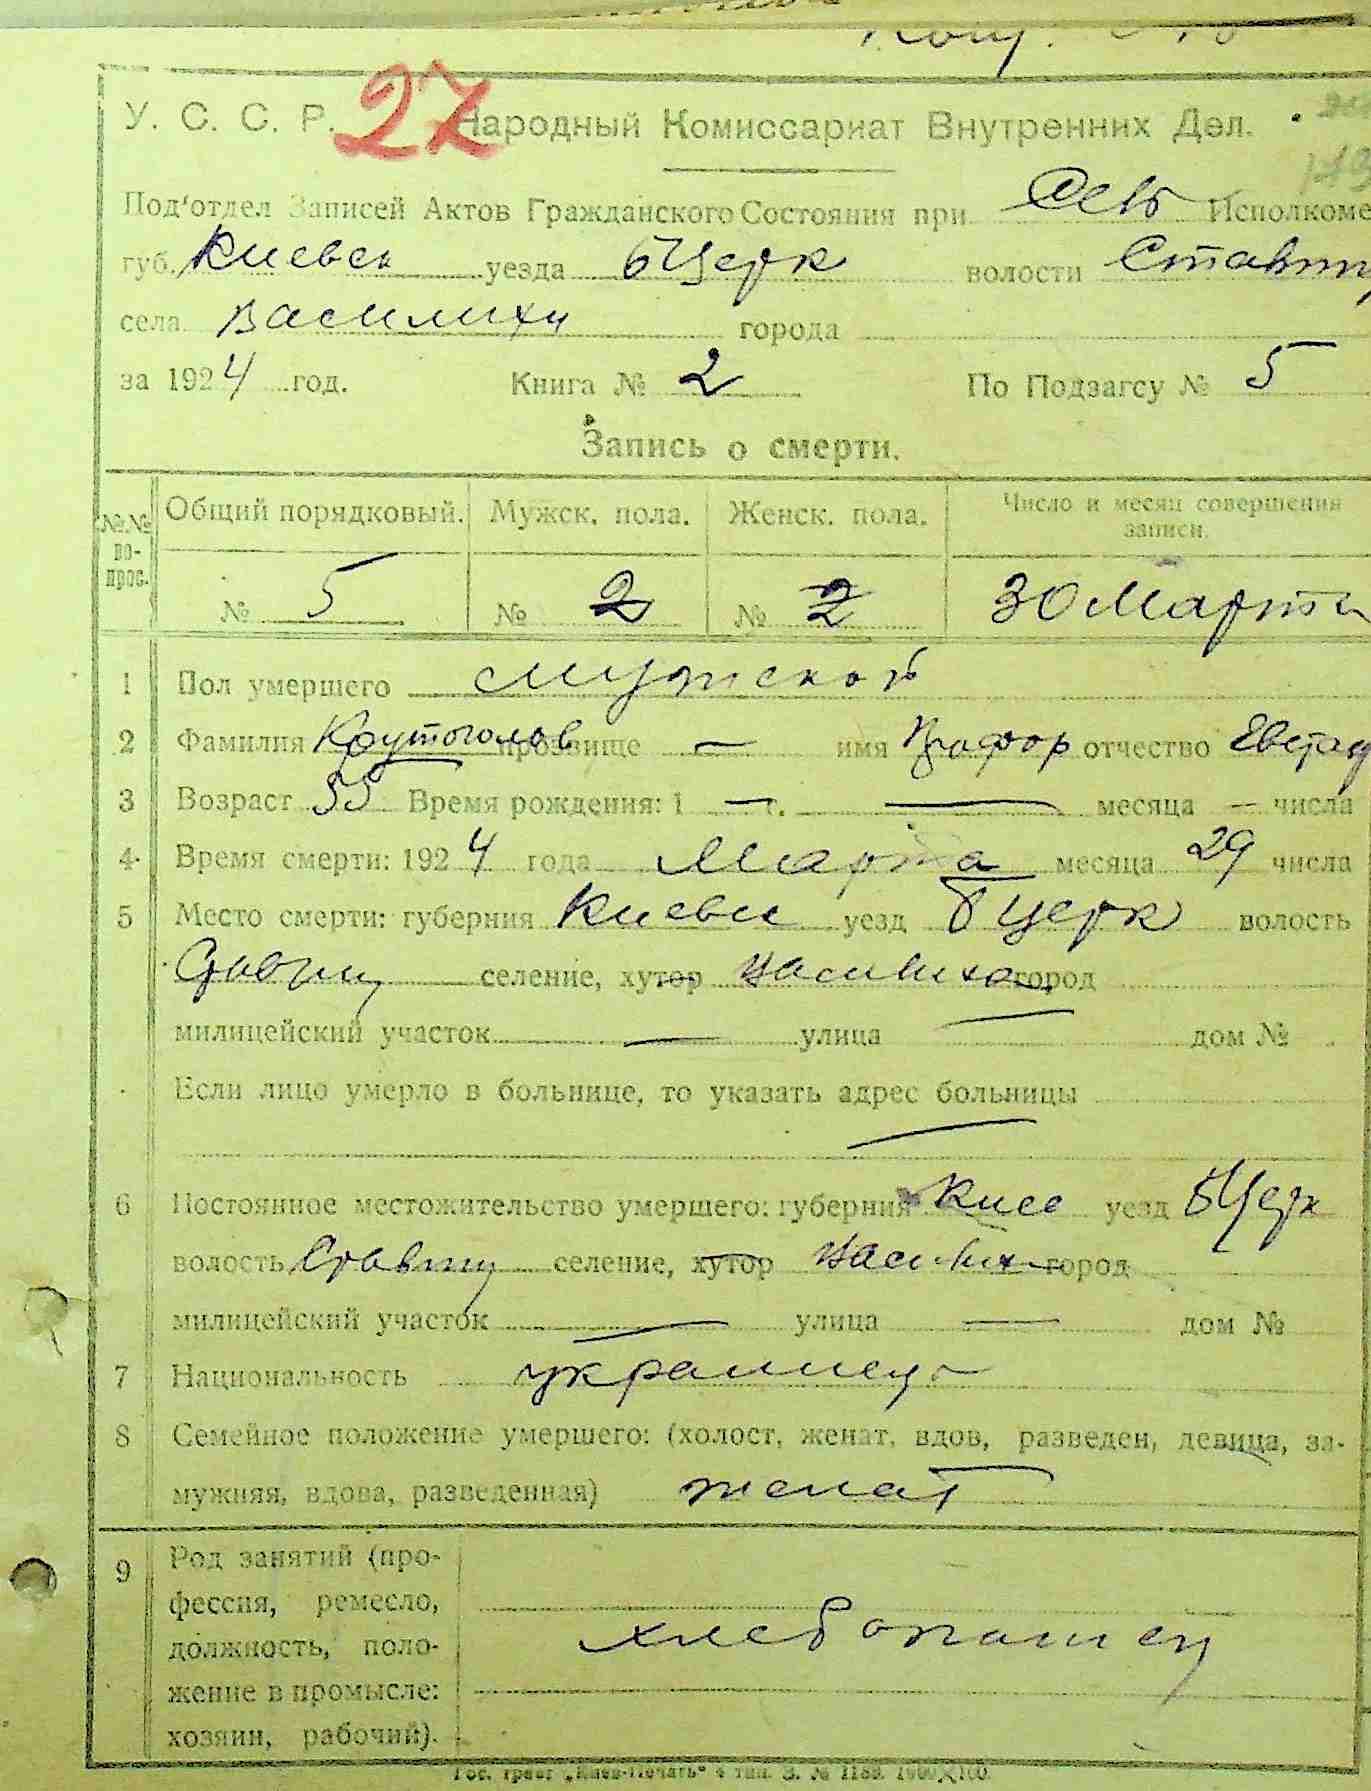 У. С. С. Р. 27 Народный Комиссариат Внутренних Дел.
Под'отдел Записей Актов Гражданского Состояния при Исполкоме
губ. Киевск уезда БЦерк волости Ставищ
села Василихи города
за 1924 год. Книга № 2 По Подзагсу № 5
Запись о смерти.
№№ во-прос. Общий порядковый. Мужск. пола. Женск. пола. Число и месяц совершения записи.
№ 5 № 2 № 2 30 Марта
1 Пол умершего мужской
2 Фамилия Крутоголов прозвище — имя отчество Евстаф
3 Возраст 55 Время рождения: 1 — г. — месяца — числа
4. Время смерти: 1924 года Марта месяца 29 числа
5 Место смерти: губерния Киевск уезд БЦерк волость
Ставищ селение, хутор Василиха город
милицейский участок — улица — дом №
Если лицо умерло в больнице, то указать адрес больницы
—
6 Постоянное местожительство умершего: губерния Киев уезд БЦерк
волость Ставищ селение, хутор Василих город
милицейский участок — улица — дом №
7 Национальность украинец
8 Семейное положение умершего: (холост, женат, вдов, разведен, девица, за-
мужняя, вдова, разведенная) женат
9 Род занятий (про-
фессия, ремесло,
должность, поло-
жение в промысле:
хозяин, рабочий).
хлебопашец
Гос. трест „Киев-Печать“ 4 тип. З. № 1189.